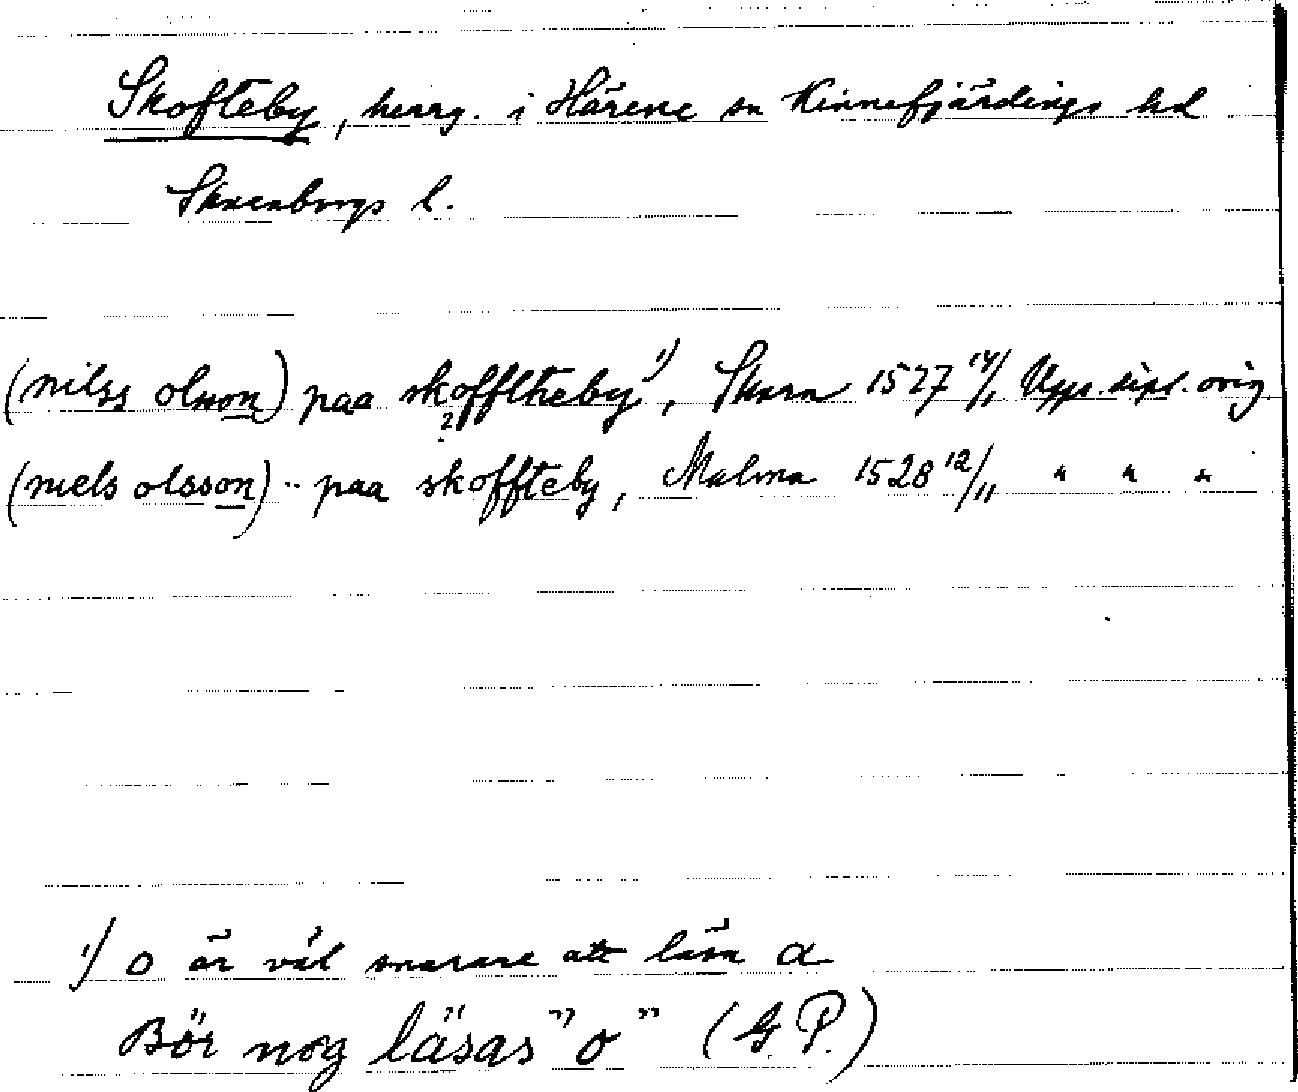 Skofteby, herrg. i Härene sn Kinnefjärdings hd
Skaraborgs l.
(nilss olsson) paa skofftheby 1), Skara 1527 14/1 Upps. dipl. orig.
?
(niels olsson) .. paa skoffteby, Malma 1528 12/11 " " "
1) o är väl snarare att läsa a
Bör nog läsas "o" (G.P.)